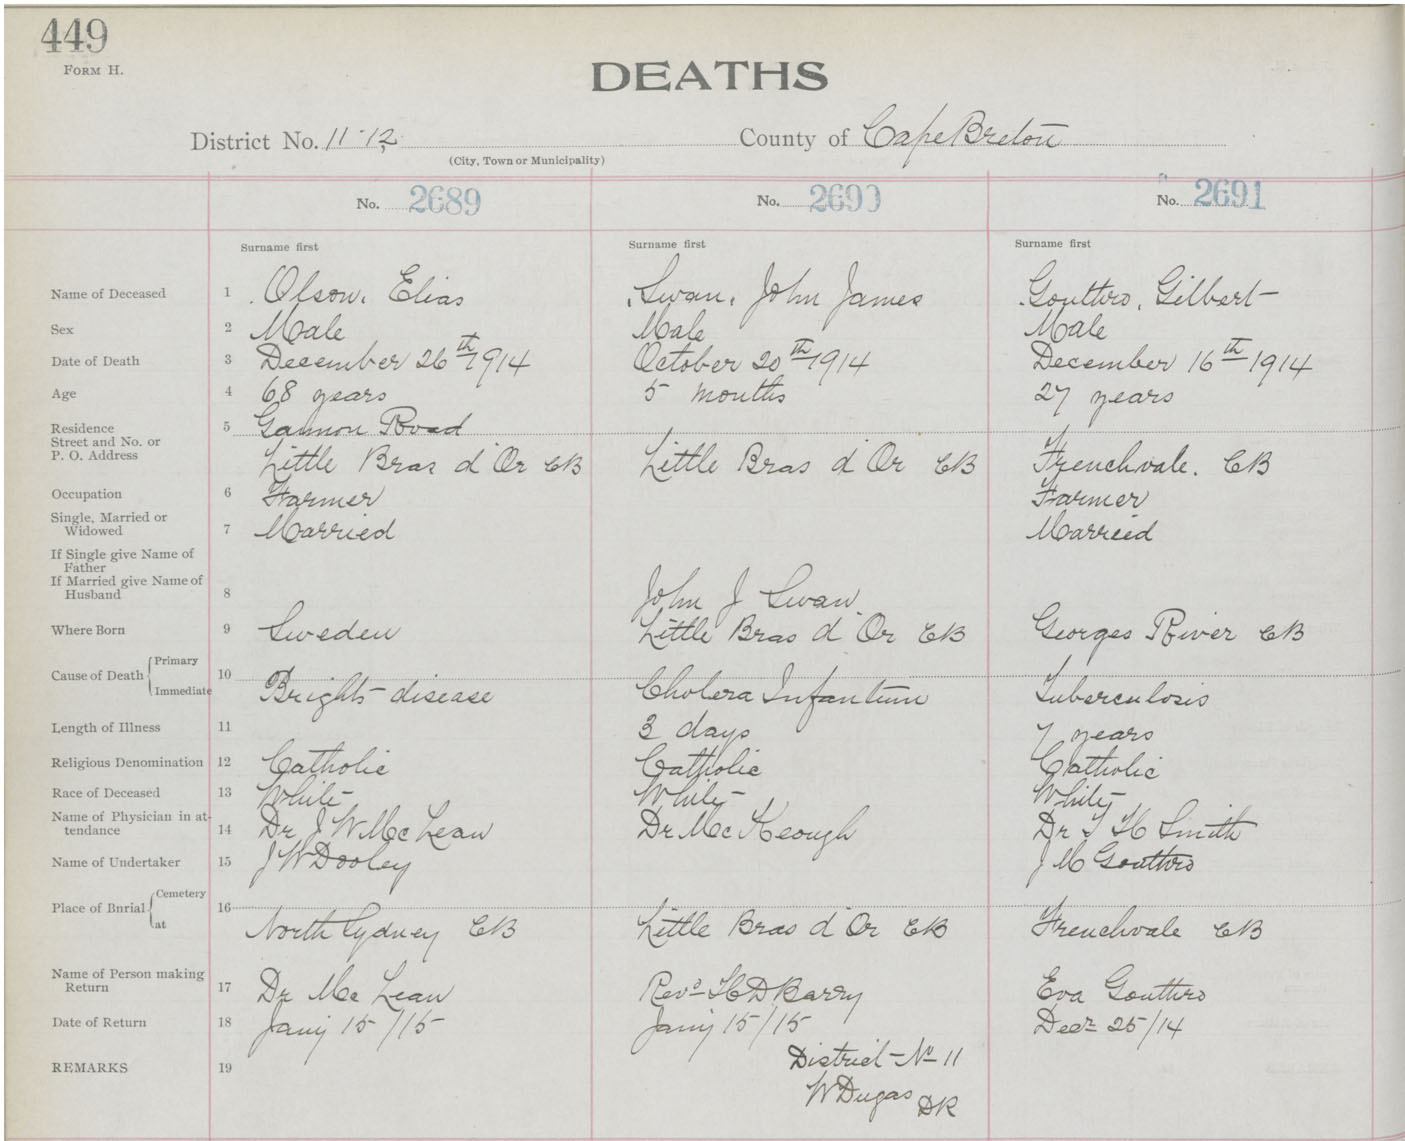 449
FORM H.
DEATHS
District No. 11-12 County of Cape Breton
(City, Town or Municipality)
No. 2689 No. 2690 No. 2691
Surname first Surname first Surname first
Name of Deceased 1 Olson, Elias Swan, John James Gouthro, Gilbert
Sex 2 Male Male Male
Date of Death 3 December 26th 1914 October 20th 1914 December 16th 1914
Age 4 68 years 5 months 27 years
Residence 5 Gannon Road
Street and No. or
P. O. Address Little Bras d'Or CB Little Bras d'Or CB Frenchvale. CB
Occupation 6 Farmer Farmer
Single, Married or
Widowed 7 Married Married
If Single give Name of
Father
If Married give Name of
Husband 8 John J Swan
Where Born 9 Sweden Little Bras d'Or CB Georges River CB
Cause of Death Primary
Immediate 10 Brights disease Cholera Infantum Tuberculosis
Length of Illness 11 3 days 7 years
Religious Denomination 12 Catholic Catholic Catholic
Race of Deceased 13 White White White
Name of Physician in at-
tendance 14 Dr J W McLean Dr McKeough Dr Smith
Name of Undertaker 15 J W Dooley J M Gouthro
Place of Bnrial Cemetery
at 16 North Sydney CB Little Bras d'Or CB Frenchvale CB
Name of Person making
Return 17 Dr McLean Revd H D Barry Eva Gouthro
Date of Return 18 Jany 15/15 Jany 15/15 Decr 25/14
REMARKS 19 District No 11
W Dugas DR